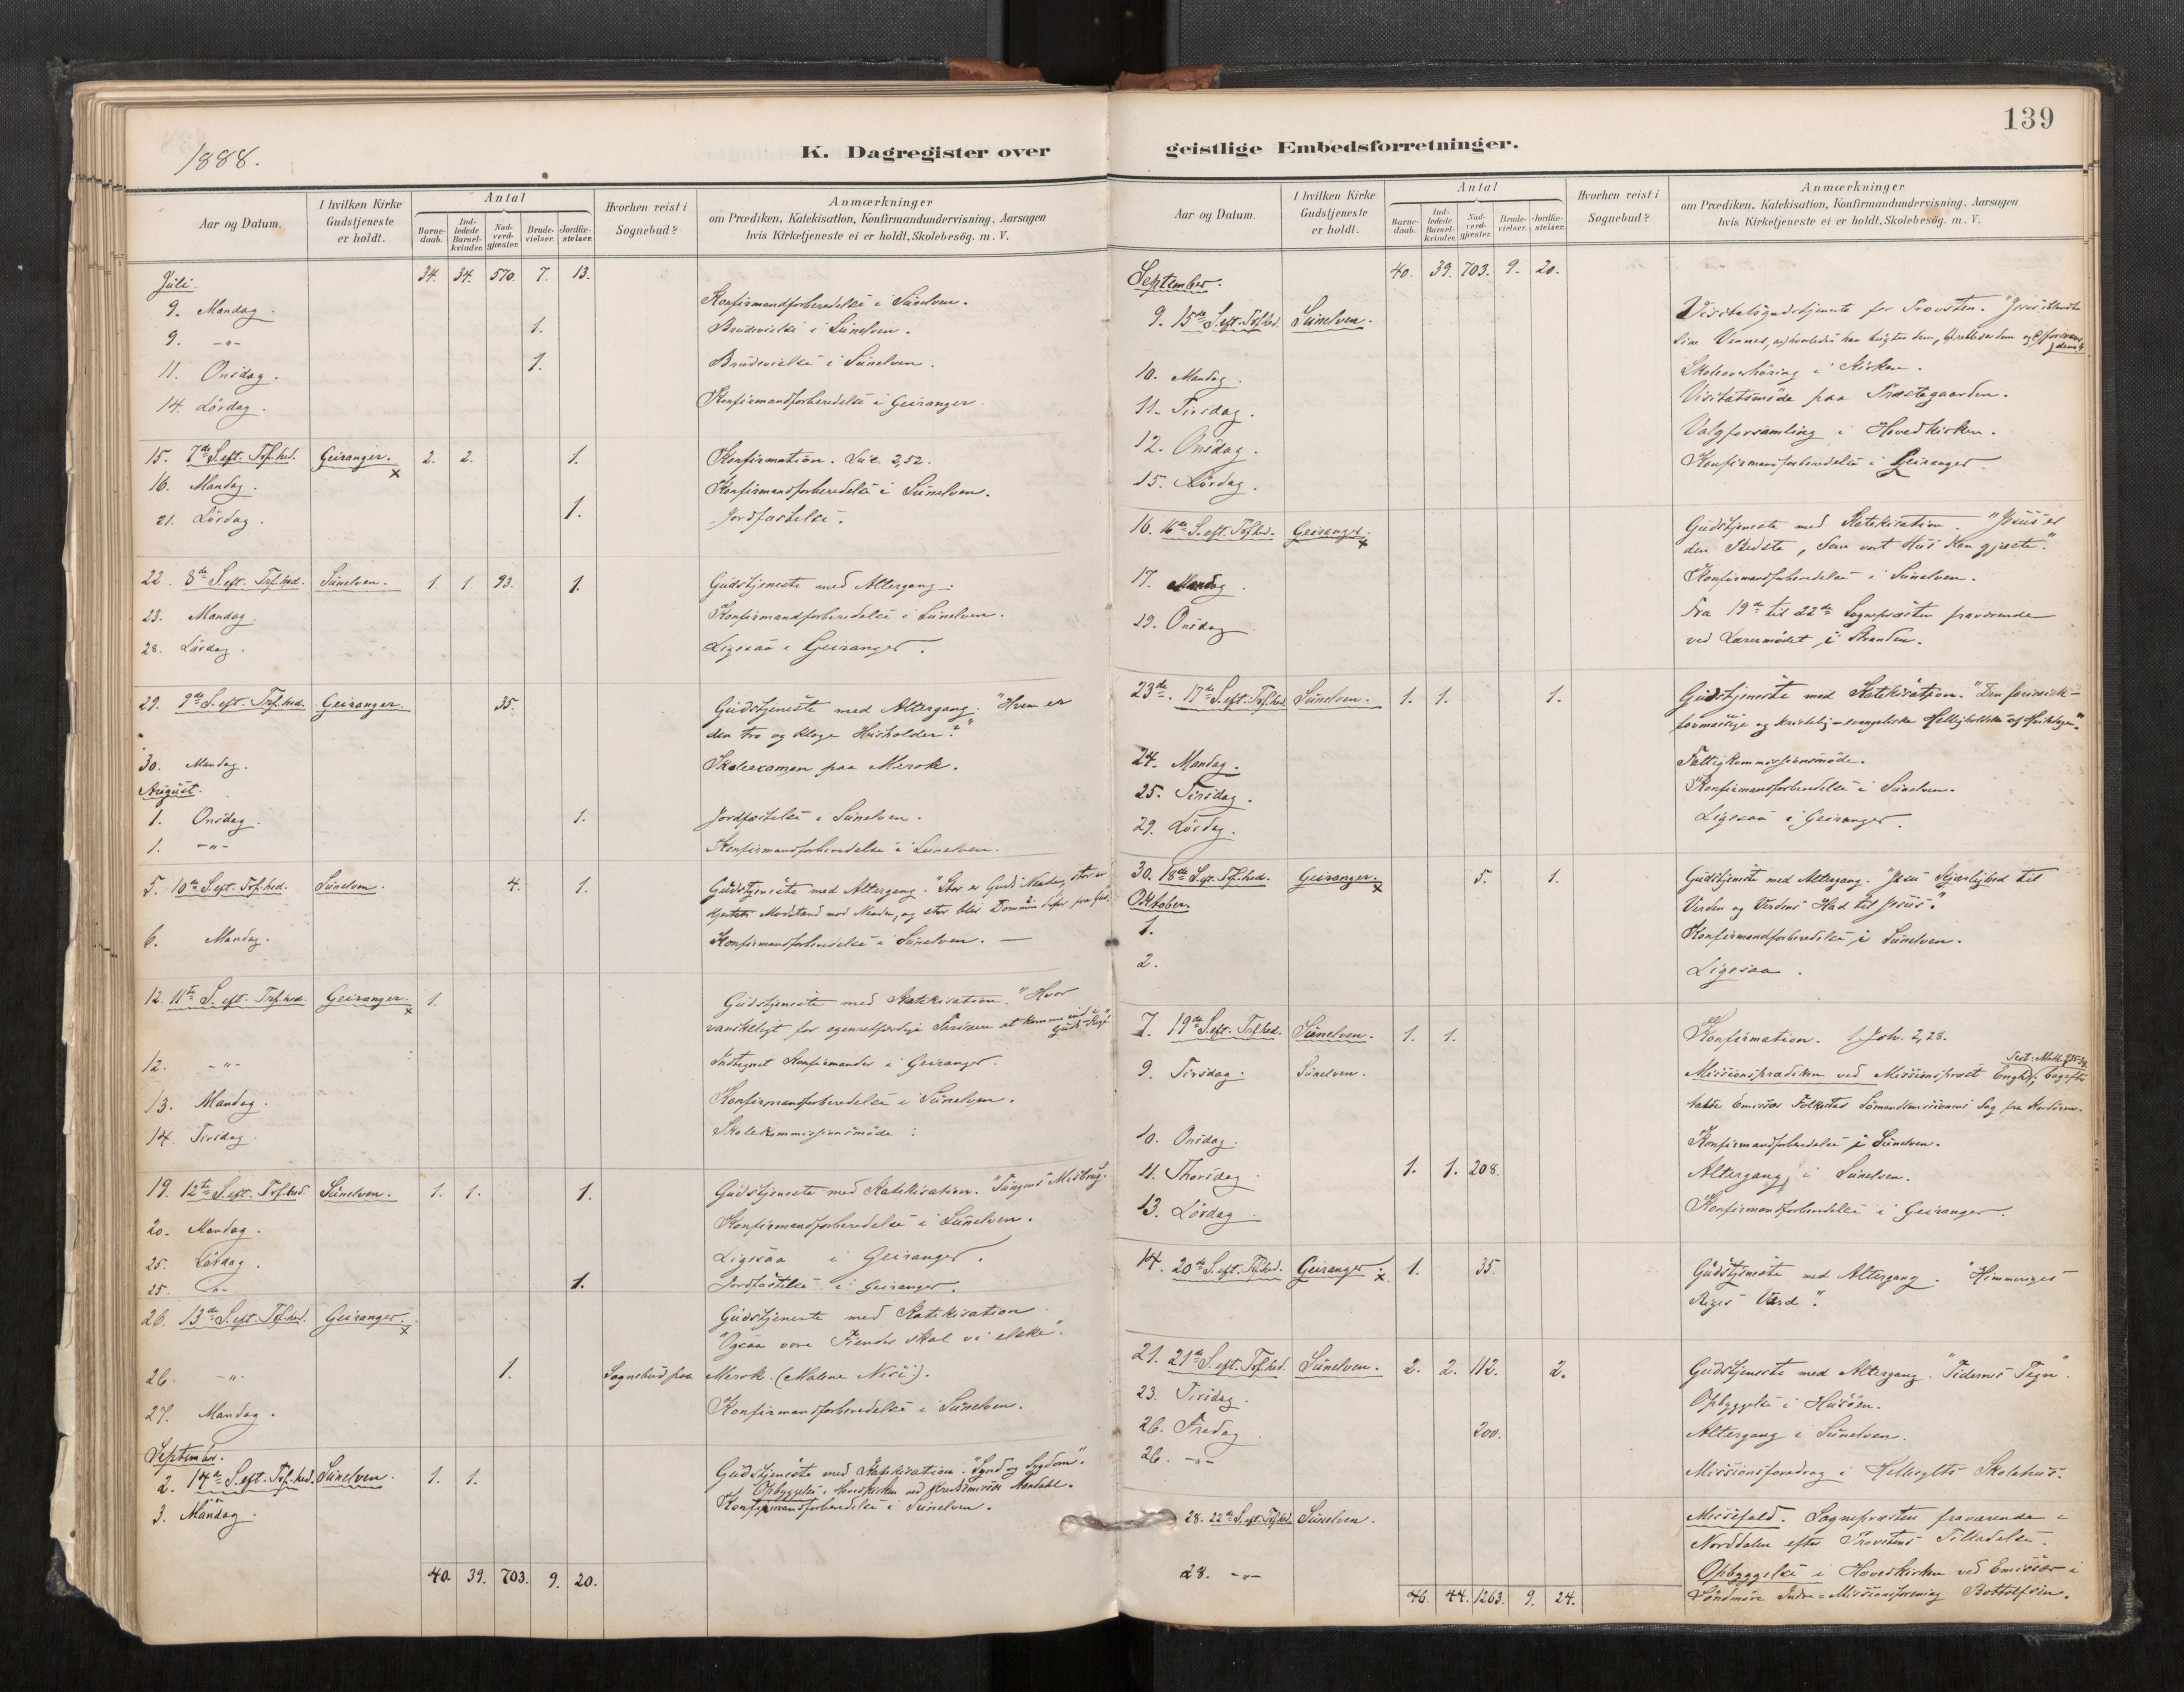 1888.
K. Dagregister over
Aar og Datum. I hvilken Kirke Gudstjeneste er holdt. Antal Barnedaab. Indledede Barselkvinder. Nadverdgjæster. Brudevielser. Jordfæstelser. Hvorhen reist i Sognebud? Anmærkninger om Prædiken, Katekisation, Konfirmandundervisning, Aarsagen hvis Kirketjeneste ei er holdt, Skolebesög. m. V.
Juli. 34. 34. 570. 7. 13.
9. Mandag. Konfirmandforberedelse i Sünelven.
9. -"- 1. Brudevielse i Sünelven.
11. Onsdag. 1. Brudevielse i Sünelven.
14. Lördag. Konfirmandforberedelse i Geiranger.
15. 7de S. eft. Tref.hed. Geiranger. x 2. 2. 1. Konfirmation. Luc. 2,52.
16. Mandag. Konfirmandforberedelse i Sünelven.
21. Lördag. 1. Jordfæstelse.
22. 8de S. eft. Tref.hed. Sünelven. 1. 1. 93. 1. Gudstjeneste med Altergang.
23. Mandag. Konfirmandforberedelse i Sünelven.
28. Lördag. Ligesaa i Geiranger.
29. 9de S. eft. Tref.hed. Geiranger. 35. Gudstjeneste med Altergang. "Hvem er
den tro og kloge Husholder?"
30. Mandag. Skoleexamen paa Merok.
August.
1. Onsdag. 1. Jordfæstelse i Sünelven.
1. -"- Konfirmandforberedelse i Sünelven.
5. 10de S. eft. Tref.hed. Sünelven. 4. 1. Gudstjeneste med Altergang. "Stor er Guds Naade, stor er
Hjertets Modstand mod Naaden, og stor blir Dommen
6. Mandag. Konfirmandforberedelse i Sünelven. —
12. 11te S. eft. Tref.hed. Geiranger. x 1. Gudstjeneste med Katekisation. "Hvor
vanskeligt for egenretfærdige Farisæere at komme ind i Guds Rige"
12. -"- Indtegnet Konfirmander i Geiranger.
13. Mandag. Konfirmandforberedelse i Sünelven.
14. Tirsdag. Skolekommissionsmöde.
19. 12te S. eft. Tref.hed. Sünelven. 1. 1. 1. Gudstjeneste med Katekisation. "Tungens Misbrug.
20. Mandag. Konfirmandforberedelse i Sünelven.
25. Lördag. Ligesaa i Geiranger.
25. -"- 1. Jordfæstelse i Geiranger.
26. 13de S. eft. Tref.hed. Geiranger. x Gudstjeneste med Katekisation
"Ogsaa vore Fiender skal vi elske".
26. -"- 1. Sognebud paa Merok. (Malene ).
27. Mandag. Konfirmandforberedelse i Sünelven.
September.
2. 14de S. eft. Tref.hed. Sünelven. 1. 1. Gudstjeneste med Katekisation. "Synd og Sygdom".
Opbyggelse i Hovedkirken ved
3. Mandag. Konfirmandforberedelse i Sünelven.
40. 39. 703. 9. 20.
139
geistlige Embedsforretninger.
Aar og Datum. I hvilken Kirke Gudstjeneste er holdt. Antal Barnedaab. Indledede Barselkvinder. Nadverdgjæster. Brudevielser. Jordfæstelser. Hvorhen reist i Sognebud? Anmærkninger om Prædiken, Katekisation, Konfirmandundervisning, Aarsagen hvis Kirketjeneste ei er holdt, Skolebesög. m. V.
September. 40. 39. 703. 9. 20.
9. 15de S. eft. Tref.hed. Sünelven. Visitatsgudstjeneste for Provsten. "Jesus iblandt
sine Venner, hvorledes han
10. Mandag. Skoleoverhöring i Kirken.
11. Tirsdag. Visitatsmöde paa Præstegaarden.
12. Onsdag. Valgforsamling i Hovedkirken.
15. Lördag. Konfirmandforberedelse i Geiranger.
16. 16de S. eft. Tref.hed. Geiranger. x Gudstjeneste med Katekisation. "Jesus er
den Bedste, som vort Hus kan gjæste."
17. Mandag. Konfirmandforberedelse i Sünelven.
19. Onsdag. Fra 19de til 22de Sognepræsten fraværende
ved Læremödet i Stranden.
23de. 17de S. eft. Tref.hed. Sünelven. 1. 1. 1. Gudstjeneste med Katekisation. "Den farisæisk-
lovmæssige og kristelig-evangeliske Helligholdelse af Hviledagen".
24. Mandag. Fattigkommissionsmöde.
25. Tirsdag. Konfirmandforberedelse i Sünelven.
29. Lördag. Ligesaa i Geiranger.
30. 18de S. eft. Tref.hed. Geiranger. x 5. 1. Gudstjeneste med Altergang. "Jesu Kjærlighed til
Verden og Verdens Had til Jesus."
Oktober.
1. Konfirmandforberedelse i Sünelven.
2. Ligesaa.
7. 19de S. eft. Tref.hed. Sünelven. 1. 1. Konfirmation. 1 Joh. 2,28.
9. Tirsdag. Sünelven. Missionsprædiken ved Missionspræst Engh;
talte Emissær Folkestad Sömandsmissionens Sag fra
10. Onsdag. Konfirmandforberedelse i Sünelven.
11. Thorsdag. 1. 1. 208. Altergang i Sünelven.
13. Lördag. Konfirmandforberedelse i Geiranger.
14. 20de S. eft. Tref.hed. Geiranger. x 1. 35. Gudstjeneste med Altergang. "Himmeriges
Riges Værd".
21. 21de S. eft. Tref.hed. Sünelven. 2. 2. 112. 2. Gudstjeneste med Altergang. "Tidernes Tegn".
23. Tirsdag. Opbyggelse i Hüsöen.
26. Fredag. 200. Altergang i Sünelven.
26. -"- Missionsforedrag i Hellesylts Skolehus.
28. 22de S. eft. Tref.hed. Sünelven. Messefald. Sognepræsten fraværende i
Norddalen efter Provstens Tilladelse.
28. -"- Opbyggelse i Hovedkirken ved Emissær i
Söndmöre Indre-Missionsforening Bottolfsen.
46. 44. 1263. 9. 24.